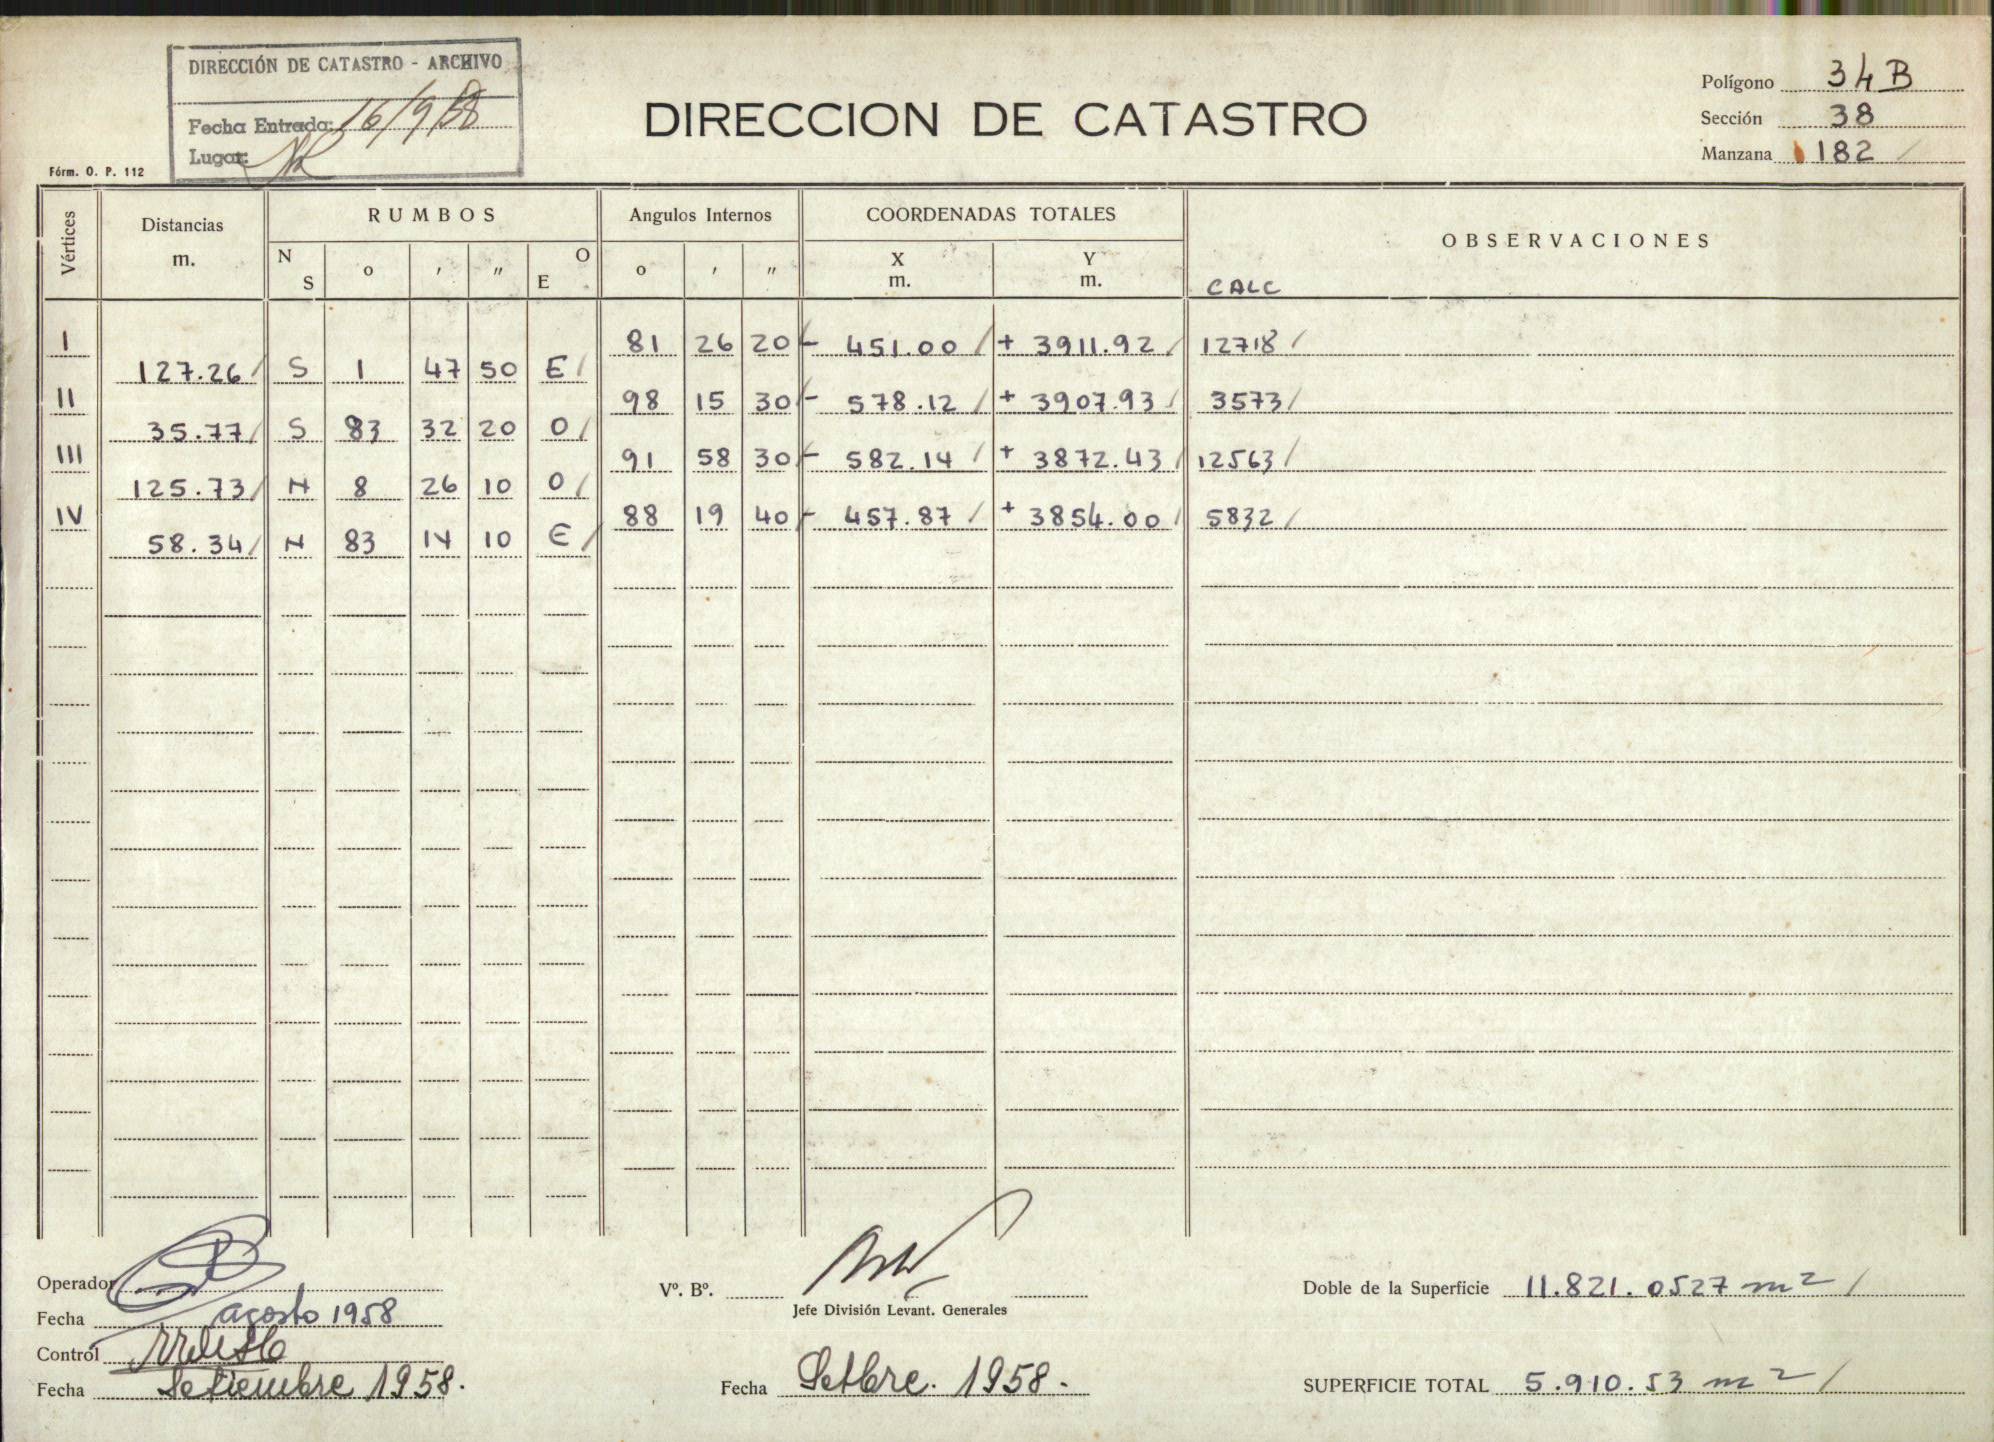 DIRECCIÓN DE CATASTRO - ARCHIVO
Fecha Entrada: 16/9/58
Lugar:
Fórm. O. P. 112
DIRECCION DE CATASTRO
Polígono 34B
Sección 38
Manzana 182 /
Vértices Distancias m. RUMBOS Angulos Internos COORDENADAS TOTALES OBSERVACIONES
N S o ' " O E o ' " X m. Y m. CALC
I 81 26 20 - 451.00 / + 3911.92 / 12718 /
127.26 / S 1 47 50 E /
II 98 15 30 - 578.12 / + 3907.93 / 3573 /
35.77 / S 83 32 20 O /
III 91 58 30 - 582.14 / + 3872.43 / 12563 /
125.73 / N 8 26 10 O /
IV 88 19 40 - 457.87 / + 3854.00 / 5832 /
58.34 / N 83 14 10 E /
Operador
Fecha agosto 1958
Control
Fecha Setiembre 1958.
Vº. Bº.
Jefe División Levant. Generales
Fecha Setbre. 1958.
Doble de la Superficie 11.821.0527 m2 /
SUPERFICIE TOTAL 5.910.53 m2 /